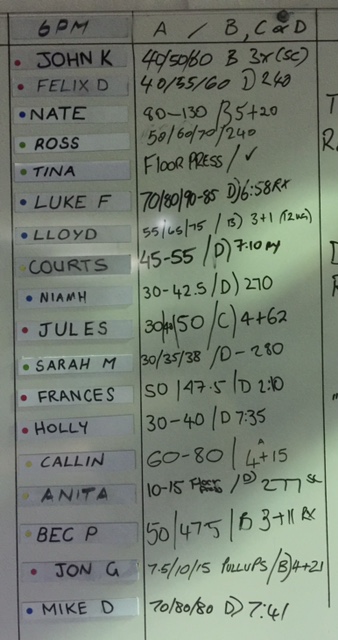 6PM A / B, C or D
JOHN K 40/50/60 B 3x(SC)
FELIX D 40/55/60 D 240
NATE 80-130 / B 5+20
ROSS 50/60/70/240
TINA FLOOR PRESS / ✓
LUKE F 70/80/90-85 D) 6:58 RX
LLOYD 55/65/75 / B) 3+1 (12kg)
COURTS 45-55 / D) 7:10
NIAMH 30-42.5 / D) 270
JULES 30/40/50 / C) 4+62
SARAH M 30/35/38 / D - 280
FRANCES 50 / 47.5 / D 2:10
HOLLY 30-40 / D 7:35
CALLIN 60-80 / A 4+15
ANITA 10-15 Floor / D) 277 SC
BEC P 50 / 47.5 / B 3+11 RX
JON G 7.5/10/15 PULLUPS / B) 4+21
MIKE D 70/80/80 D) 7:41